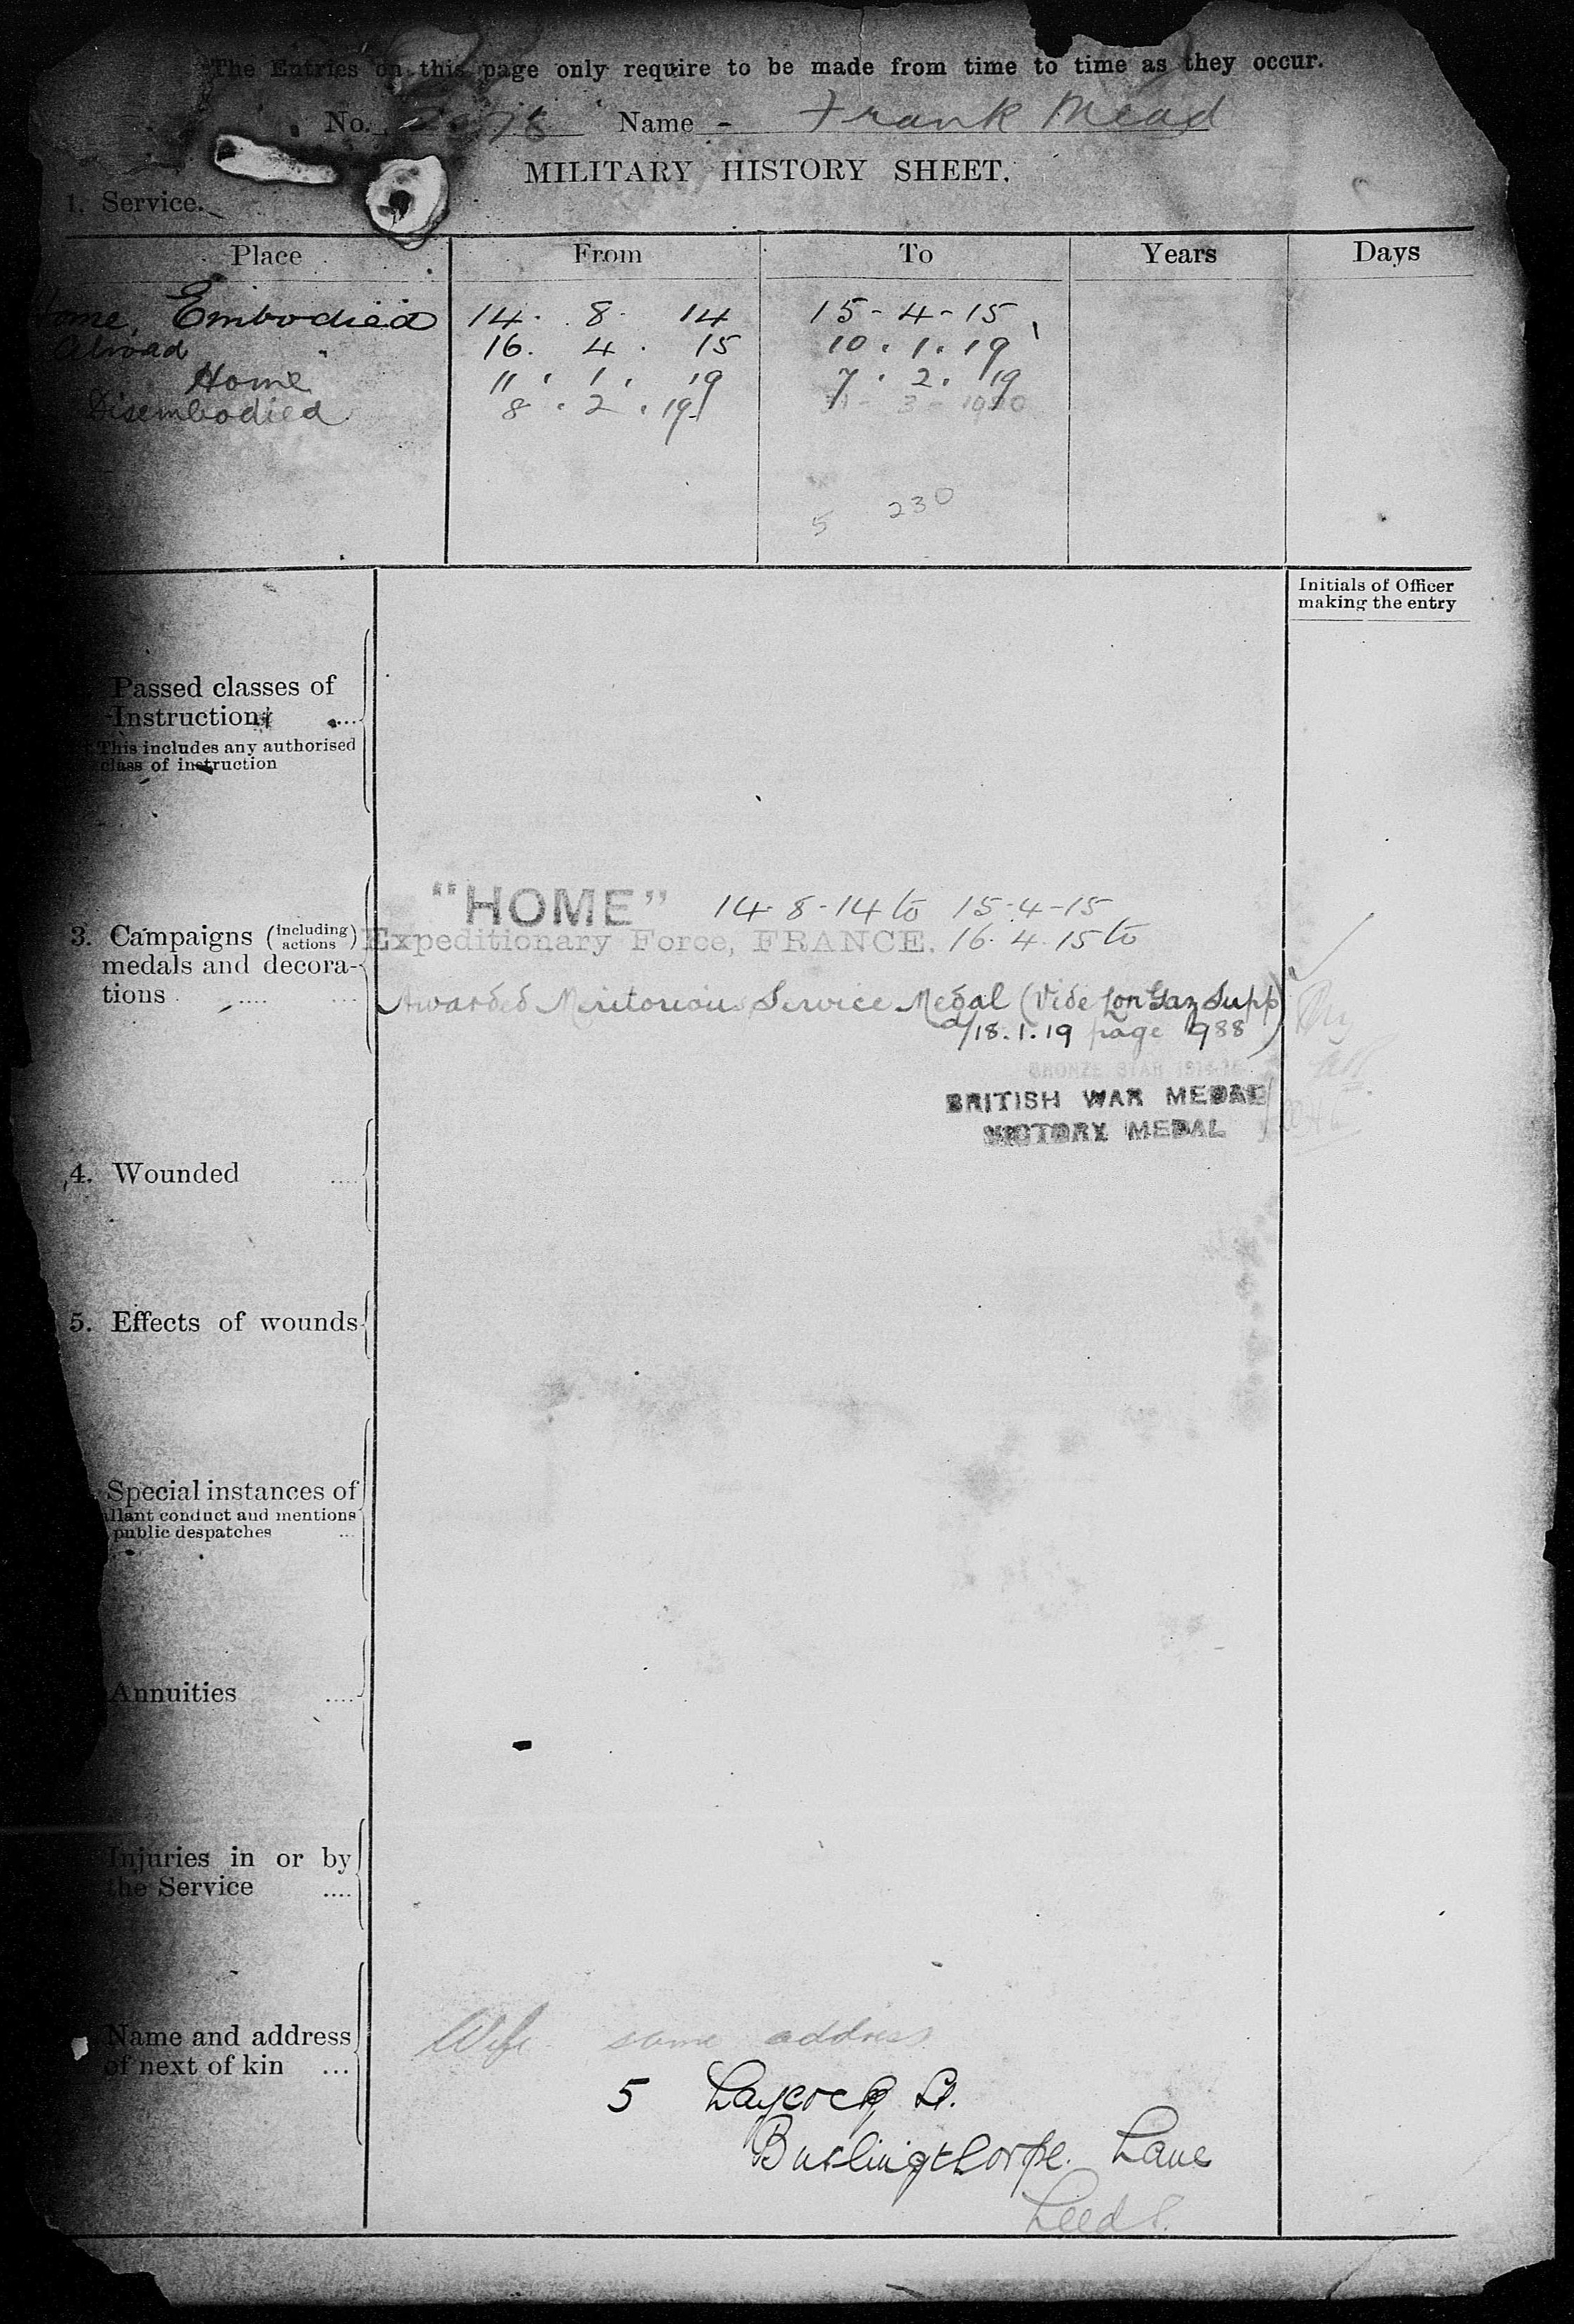 The Entries on this page only require to be made from time to time as they occur.
No. Name - Frank Mead
MILITARY HISTORY SHEET.
1. Service.
Place From To Years Days
Home, Embodied 14. 8. 14 15-4-15
Abroad 16. 4. 15 10.1.19
Home 11. 1. 19 7.2.19
Disembodied 8.2.19 31-3-1920
5 230
Initials of Officer
making the entry
Passed classes of
Instruction
This includes any authorised
class of instruction
"HOME" 14-8-14 to 15-4-15
3. Campaigns (including actions) Expeditionary Force, FRANCE. 16.4.15 to
medals and decora-
tions .... ...
Awarded Meritorious Service Medal (Vide Lon Gaz Supp
d/18.1.19 page 988)
BRONZE STAR 1914-15
BRITISH WAR MEDAL
VICTORY MEDAL
4. Wounded ....
5. Effects of wounds
Special instances of
gallant conduct and mentions
public despatches ...
Annuities ....
Injuries in or by
the Service ....
Name and address
of next of kin ...
Wife same address
5 Laycock St.
Buslingthorpe Lane
Leeds.